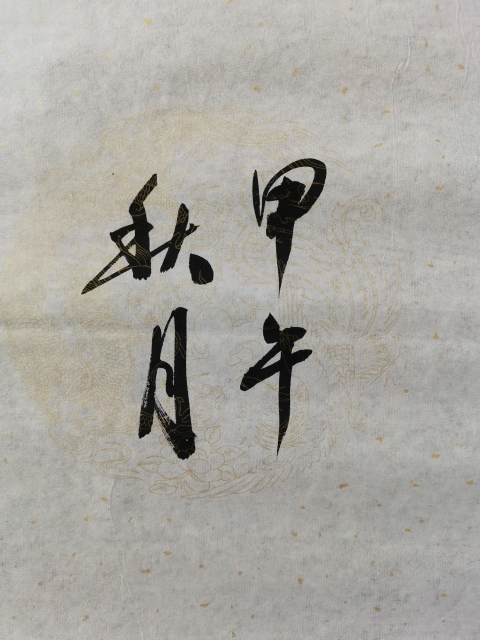 甲午
秋月